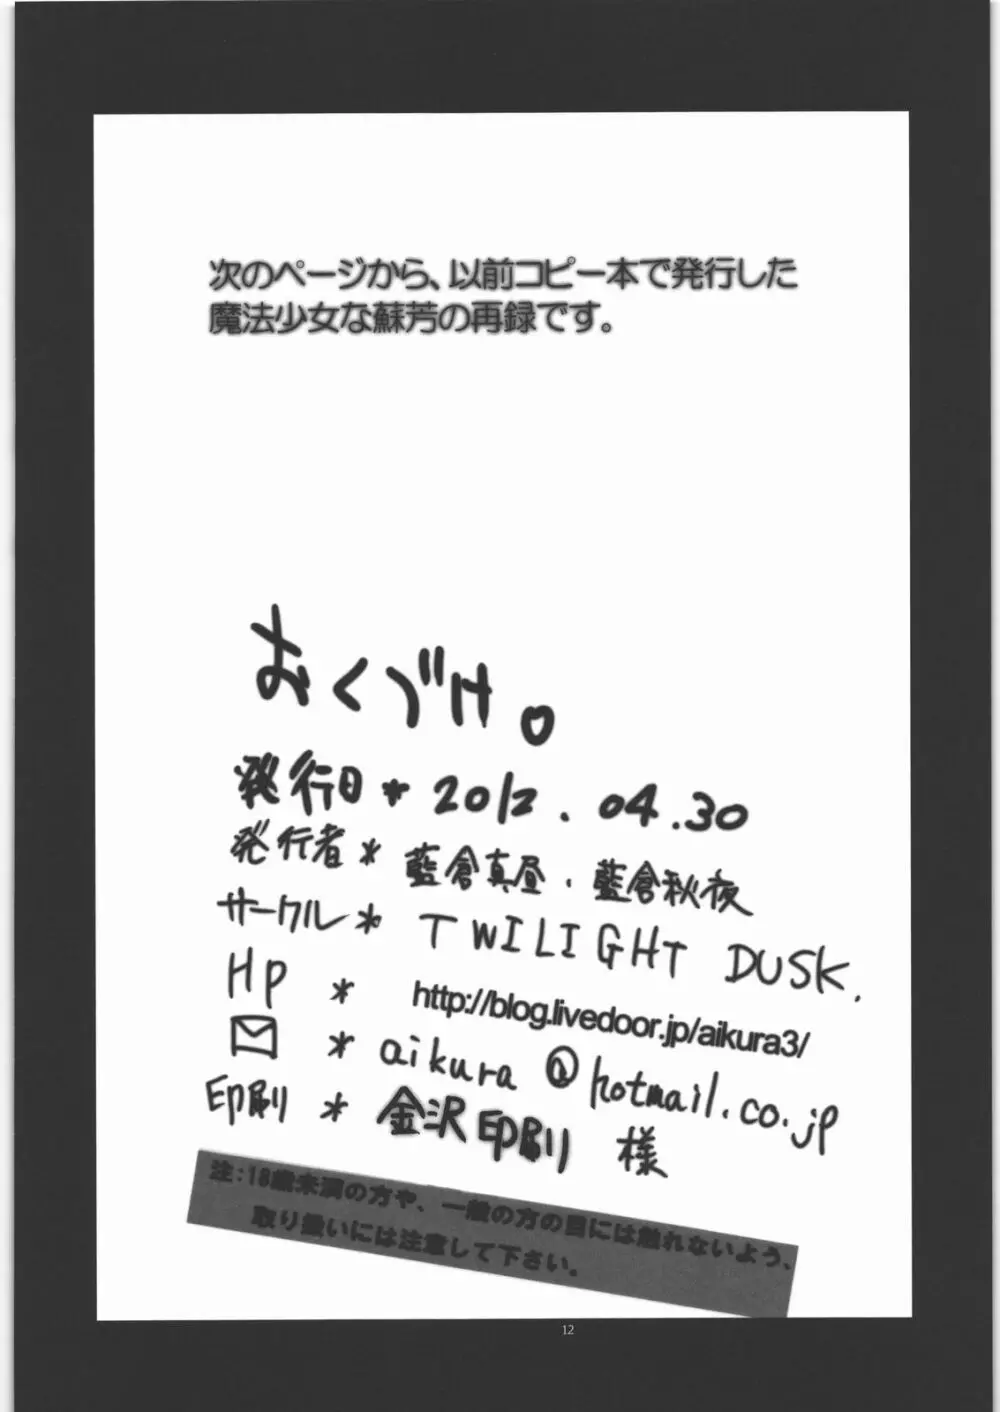 次のページから、以前コピー本で発行した
魔法少女な蘇芳の再録です。
おくづけ。
発行日 * 2012.04.30
発行者 * 藍倉真昼.藍倉秋夜
サークル * TWILIGHT DUSK.
HP * http://blog.livedoor.jp/aikura3/
* aikura@hotmail.co.jp
印刷 * 金沢印刷 様
注:18歳未満の方や、一般の方の目には触れないよう、
取り扱いには注意して下さい。
12